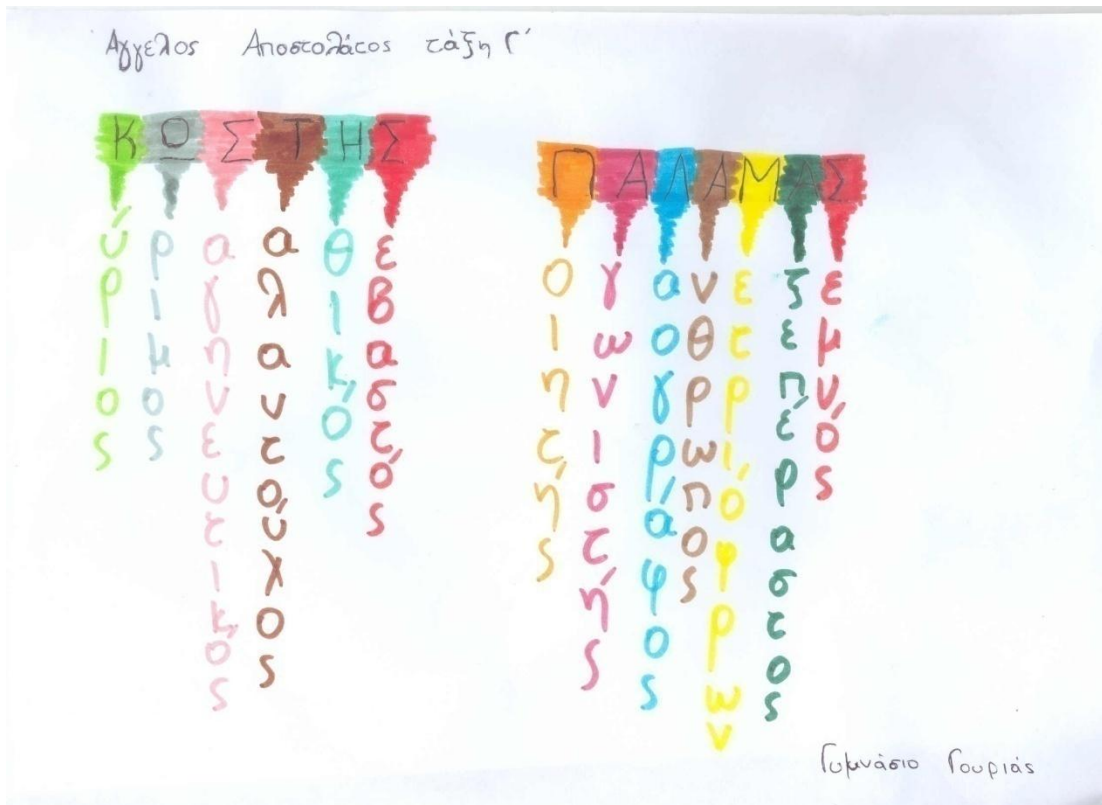 Αγγελος Αποστολάτος τάξη Γ΄
ΚΩΣΤΗΣ
ύριος
ριμος
αγηνευτικός
αλαντούχος
θικός
εβαστός
ΠΑΛΑΜΑΣ
οιητής
γωνιστής
αογράφος
νθρωπος
ετριόφρων
ξεπέραστος
εμνός
Γυμνάσιο Γουριάς